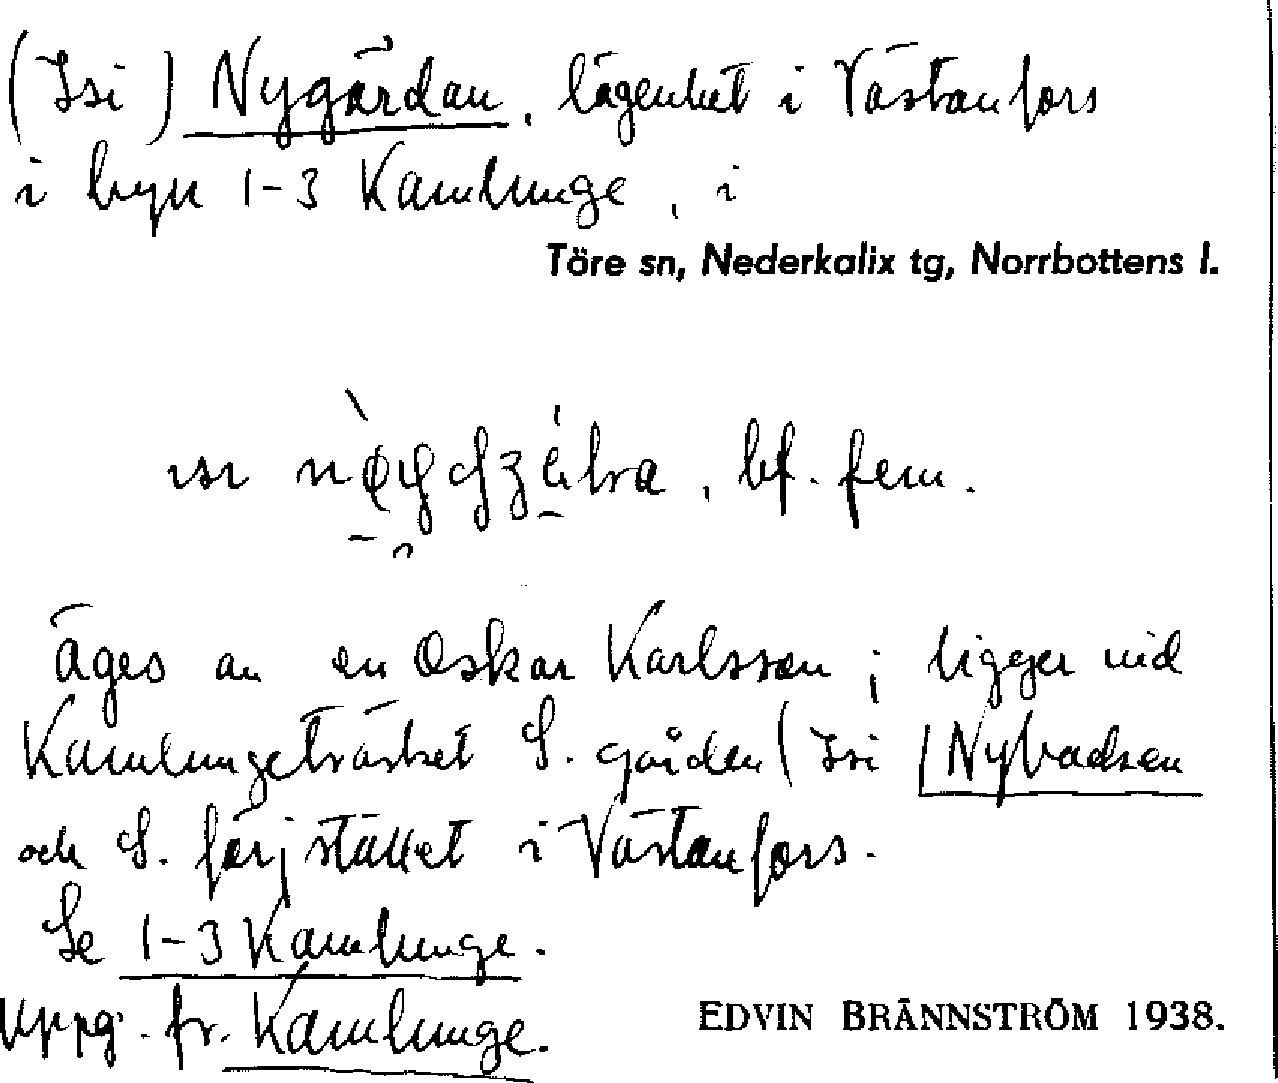 (Isi) Nygärdan, lägenhet i Västanfors
i byn 1-3 Kamlunge, i
Töre sn, Nederkalix tg, Norrbottens l.
bf. fem.
äges av en Oskar Karlsson; ligger vid
Kamlungeträsket S. gården (Isi) Nybadsen
och S. färjstället i Västanfors.
Se 1-3 Kamlunge.
Uppg. fr. Kamlunge.
EDVIN BRÄNNSTRÖM 1938.